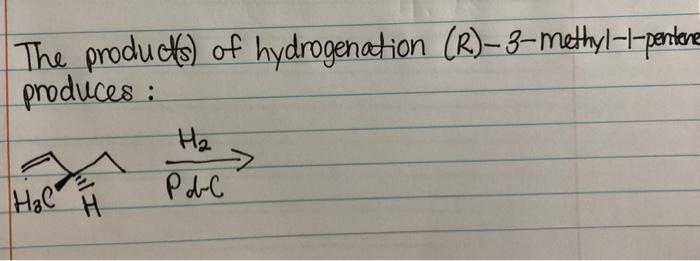 The product(s) of hydrogenation (R)-3-methyl-1-pentene
produces :
H₂
Pd-C
H₃C
H